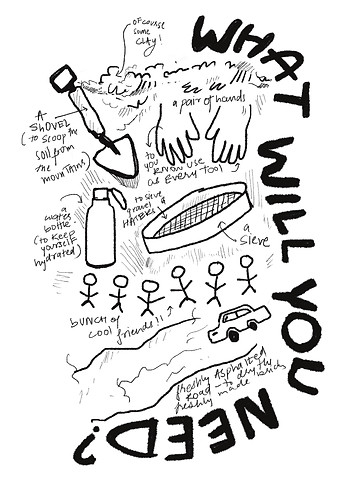 WHAT WILL YOU NEED?
OF COURSE
some
CLAY!
a pair of hands
A
SHOVEL
(to scoop the
soil from
the
mountains)
to
you know use
as EVERY TOOL
a
water
bottle
(to keep
yourself
hydrated)
to
gravel
a
sieve
bUNCH of
cool friends!!
freshly Asphalted
Road - to dry the
freshly made